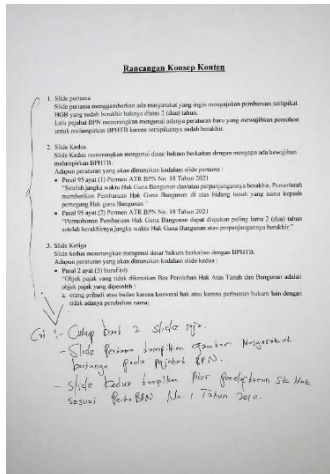 Rancangan Konsep Konten
1. Slide pertama
Slide pertama menggambarkan ada masyarakat yang ingin mengajukan pembaruan sertipikat
HGB yang sudah berakhir haknya diatas 2 (dua) tahun.
Lalu pejabat BPN menerangkan mengenai adanya peraturan baru yang mewajibkan pemohon
untuk melampirkan BPHTB karena sertipikatnya sudah berakhir.
2. Slide Kedua
Slide Kedua menerangkan mengenai dasar hukum berkaitan dengan mengapa ada kewajiban
melampirkan BPHTB.
Adapun peraturan yang akan dimasukan kedalam slide pertama :
• Pasal 95 ayat (1) Permen ATR BPN No. 18 Tahun 2021
"Setelah jangka waktu Hak Guna Bangunan dan/atau perpanjangannya berakhir, Pemerintah
memberikan Pembaruan Hak Guna Bangunan di atas bidang tanah yang sama kepada
pemegang Hak guna Bangunan."
• Pasal 95 ayat (2) Permen ATR BPN No. 18 Tahun 2021
"Permohonan Pembaruan Hak Guna Bangunan dapat diajukan paling lama 2 (dua) tahun
setelah berakhirnya jangka waktu Hak Guna Bangunan atau perpanjangannya berakhir."
3. Slide Ketiga
Slide kedua menerangkan mengenai dasar hukum berkaitan dengan BPHTB.
Adapun peraturan yang akan dimasukan kedalam slide kedua :
• Pasal 2 ayat (5) huruf (d)
"Objek pajak yang tidak dikenakan Bea Perolehan Hak Atas Tanah dan Bangunan adalah
objek pajak yang diperoleh :
a. orang pribadi atau badan karena konversi hak atau karena perbuatan hukum lain dengan
tidak adanya perubahan nama;
- Cukup buat 2 slide saja.
- Slide Pertama tampilkan gambar Masyarakat
bertanya pada pejabat BPN.
- Slide Kedua tampilkan alur pendaftaran SK Hak
sesuai PerkaBPN No. 1 Tahun 2010.